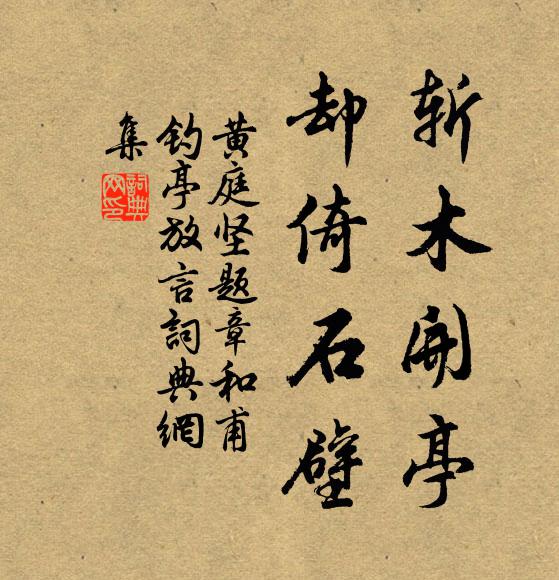 斩木开亭
却倚石壁
黄庭坚题章和甫
钓亭放言詞典網
集
詞典網印